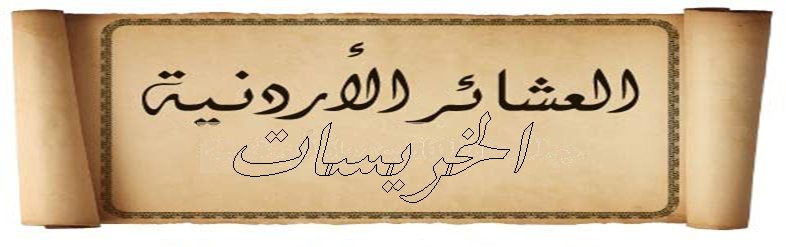 العشائر الأردنية
الخريسات